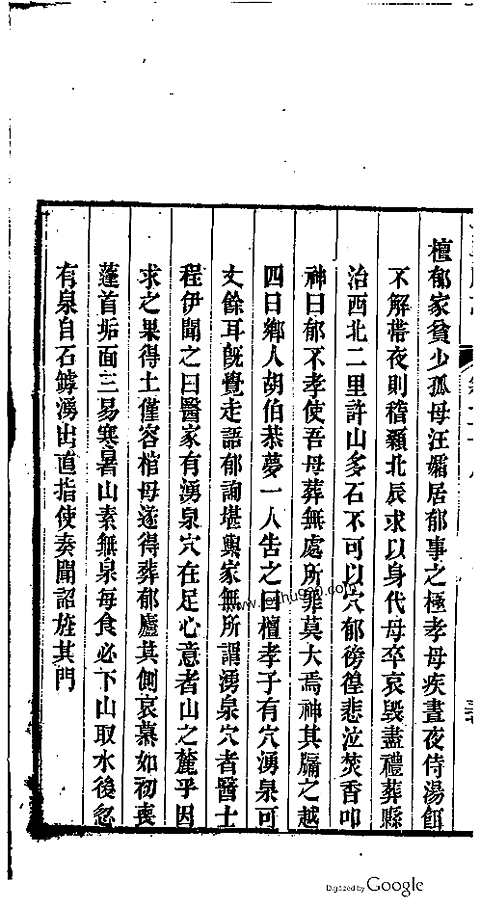 檀郁家貧少孤母汪孀居郁事之極孝母疾晝夜侍湯餌
不解帶夜則稽顙北辰求以身代母卒哀毀盡禮葬縣
治西北二里許山多石不可以穴郁徬徨悲泣焚香叩
神曰郁不孝使吾母葬無處所罪莫大焉神其牖之越
四日鄉人胡伯恭夢一人告之曰檀孝子有穴湧泉可
丈餘耳旣覺走語郁詢堪輿家無所謂湧泉穴者醫士
程伊聞之曰醫家有湧泉穴在足心意者山之麓乎因
求之果得土僅容棺母遂得葬郁廬其側哀慕如初喪
蓬首垢面三易寒暑山素無泉每食必下山取水後忽
有泉自石罅湧出直指使奏聞詔旌其門
www.ershuguan.com
Digitized by Google